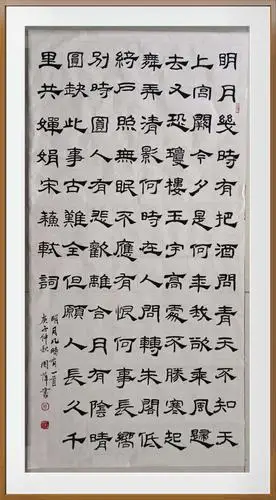 明月幾時有把酒問青天不知天
上宮闕今夕是何年我欲乘風歸
去又恐瓊樓玉宇高處不勝寒起
舞弄清影何時在人間轉朱閣低
綺戶照無眠不應有恨何事長嚮
別時圓人有悲歡離合月有陰晴
圓缺此事古難全但願人長久千
里共嬋娟宋蘇軾詞
明月几時有一首
庚子仲秋周書